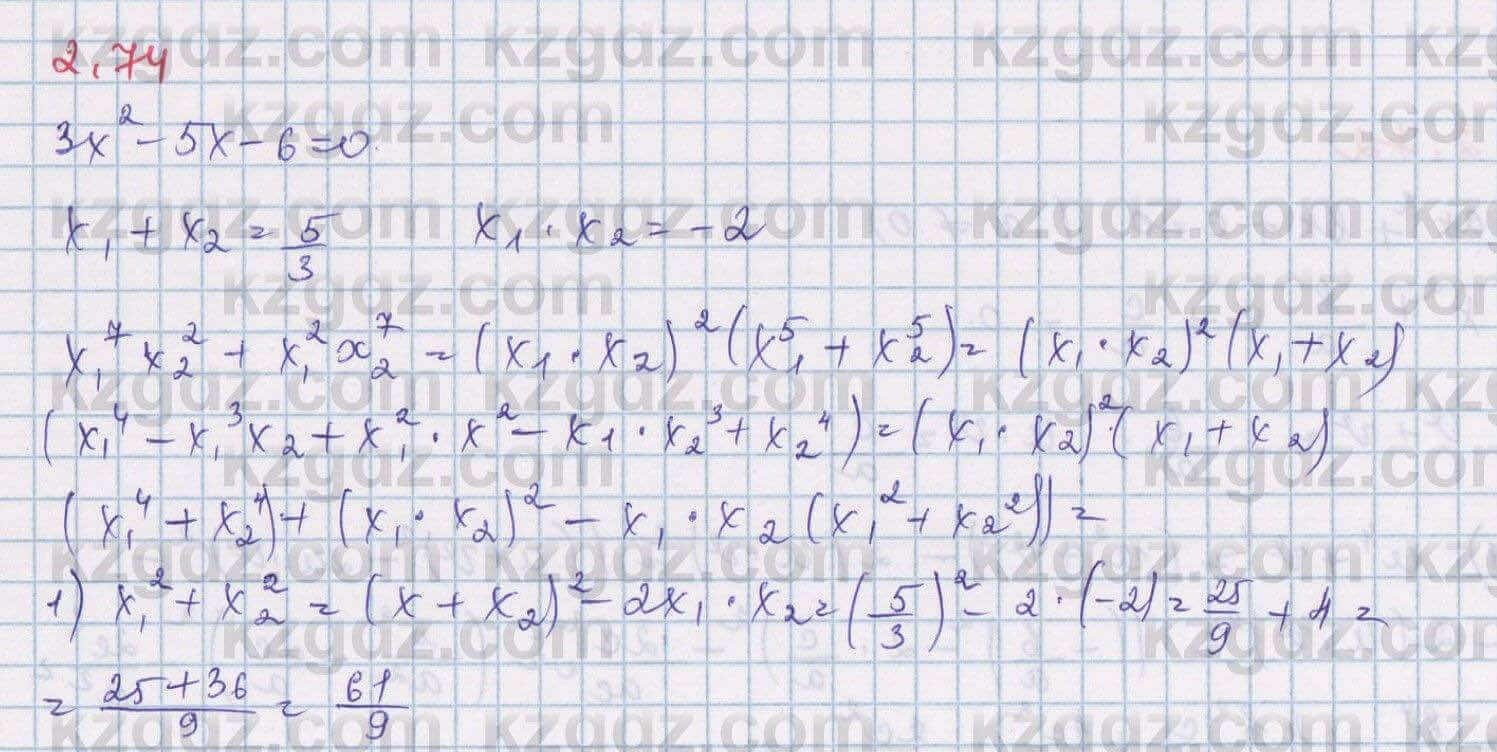 2.74
3x² - 5x - 6 = 0.
x₁ + x₂ = 5/3    x₁ · x₂ = -2
x₁⁷ x₂² + x₁² x₂⁷ = (x₁ · x₂)² (x₁⁵ + x₂⁵) = (x₁ · x₂)² (x₁ + x₂)
(x₁⁴ - x₁³ x₂ + x₁² · x² - x₁ · x₂³ + x₂⁴) = (x₁ · x₂)² (x₁ + x₂)
(x₁⁴ + x₂⁴) + (x₁ · x₂)² - x₁ · x₂ (x₁² + x₂²)) =
1) x₁² + x₂² = (x + x₂)² - 2x₁ · x₂ = (5/3)² - 2 · (-2) = 25/9 + 4 =
= (25+36)/9 = 61/9
kzgdz.com